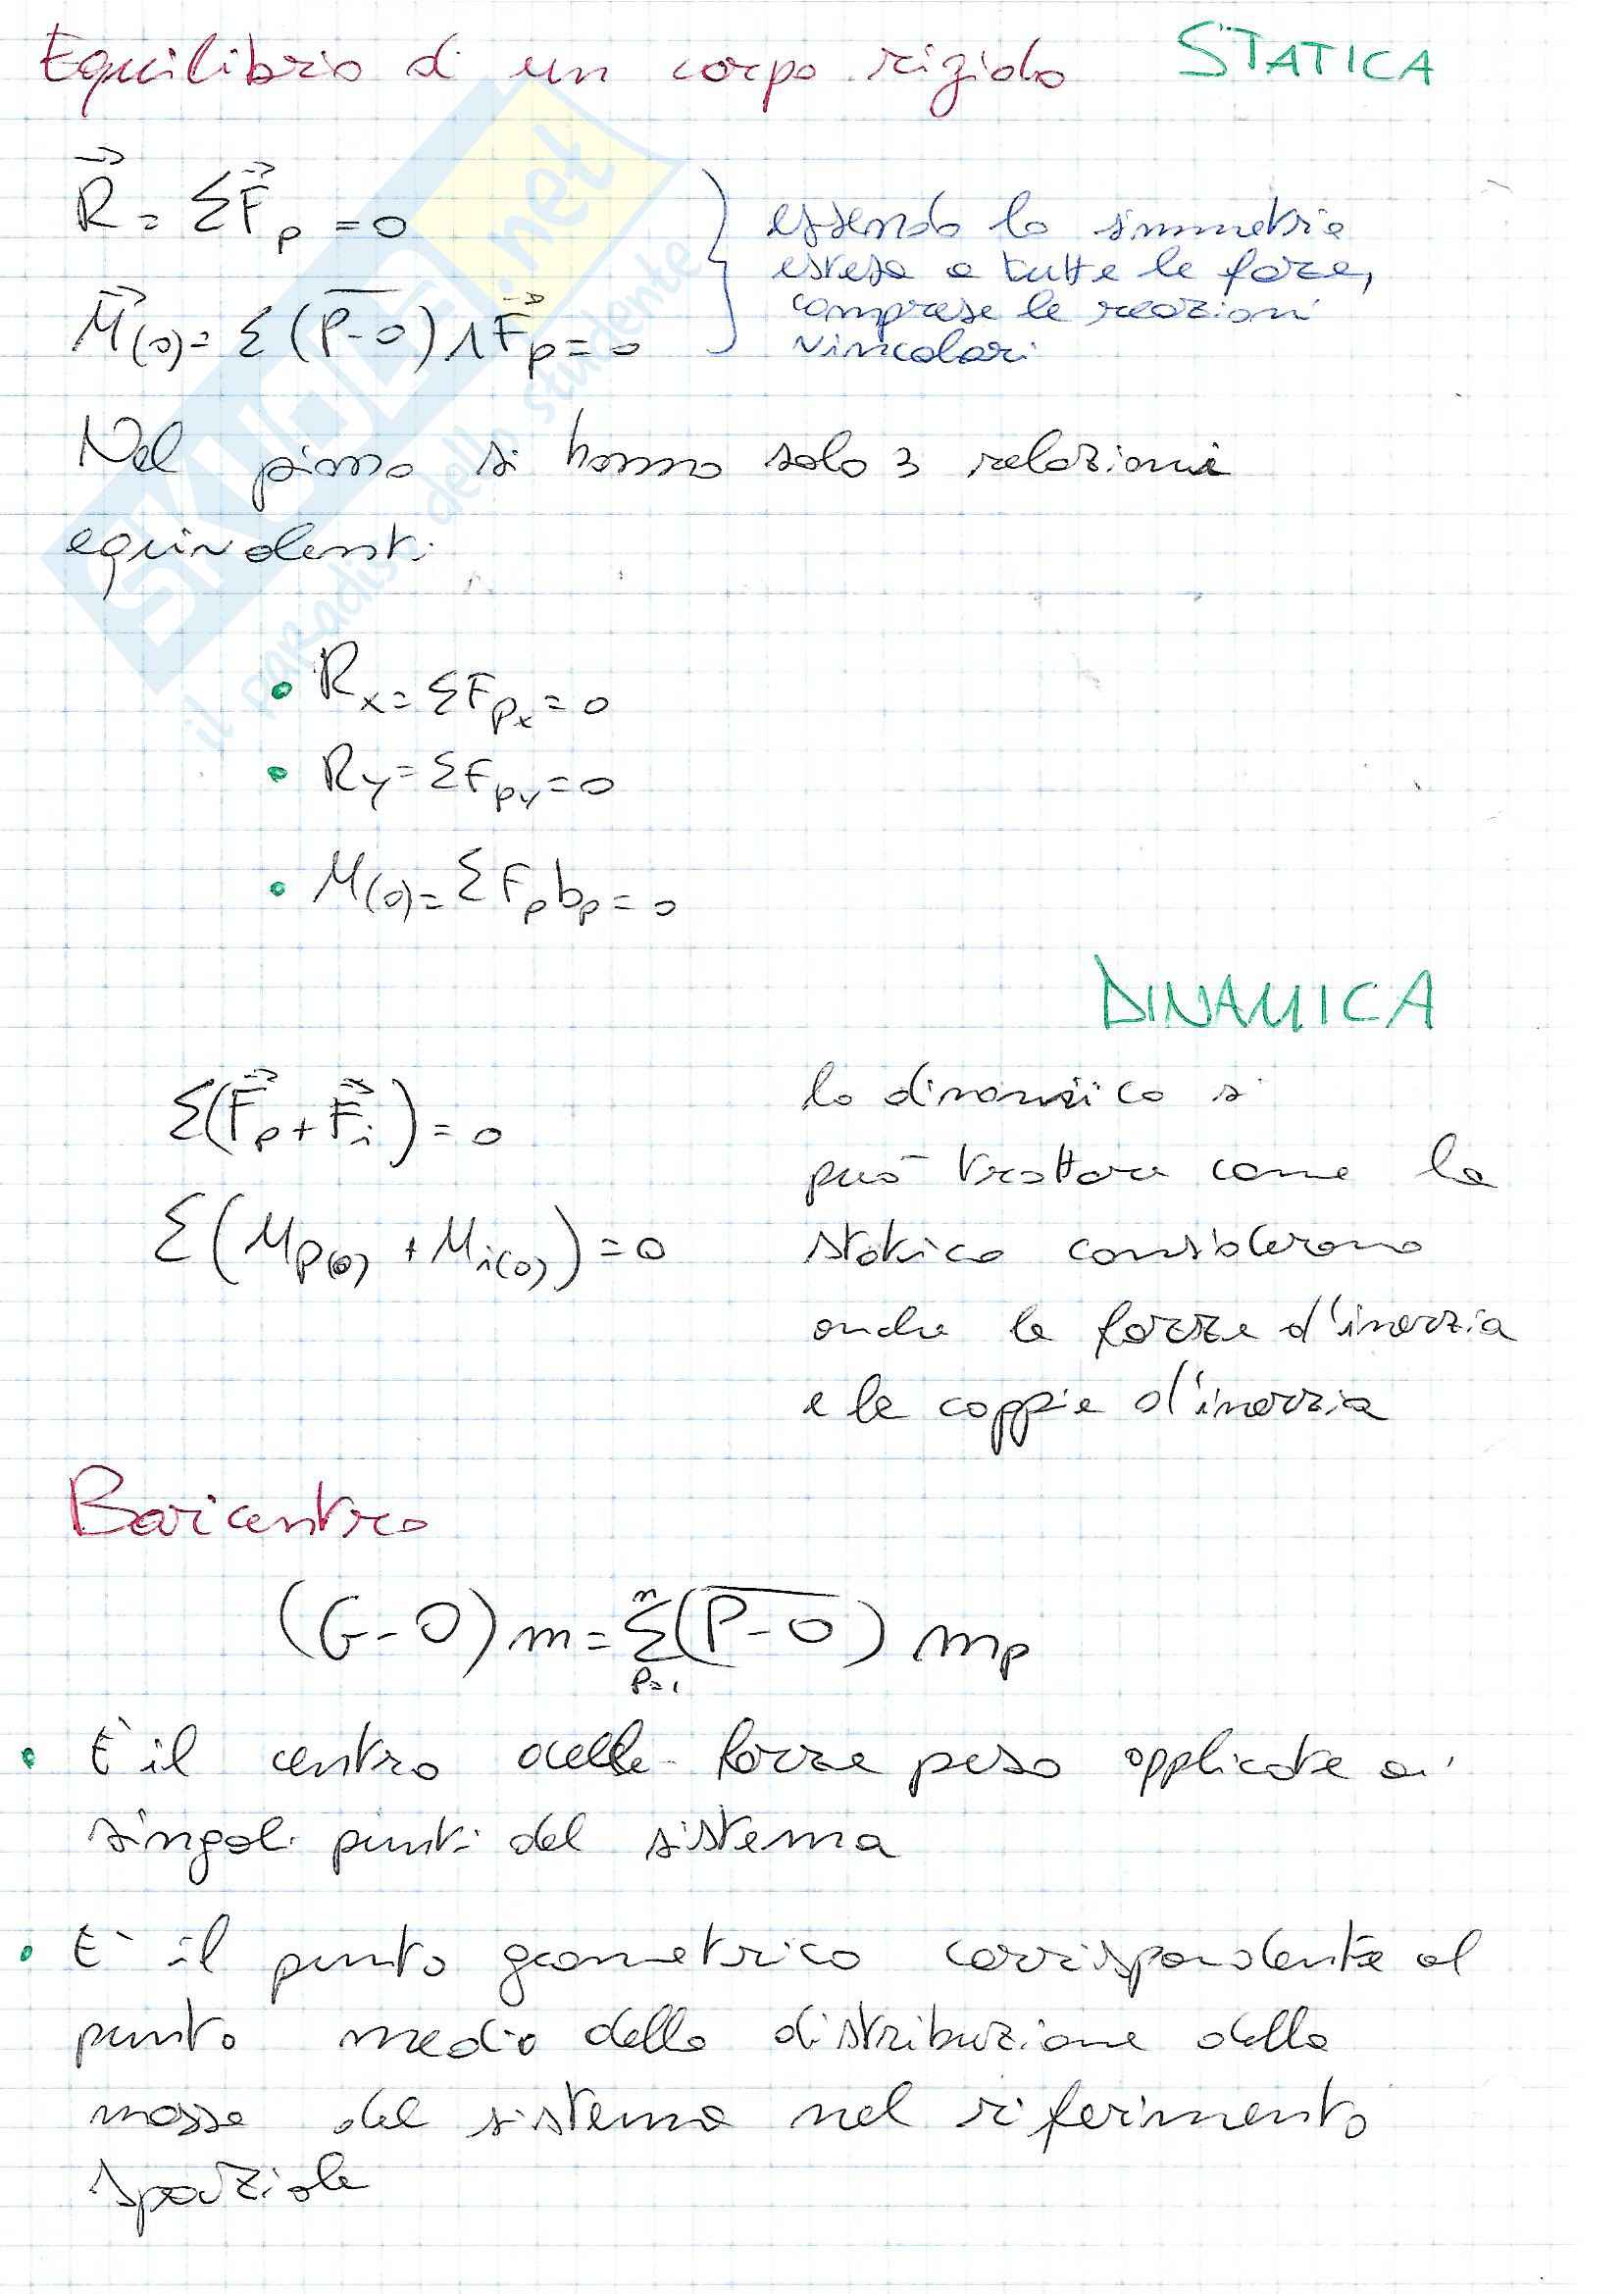 Equilibrio di un corpo rigido STATICA
R⃗ = ΣF⃗p = 0
M⃗(O) = Σ(P-O) ∧ F⃗p = 0
essendo la simmetria
estesa a tutte le forze,
comprese le reazioni
vincolari
Nel piano si hanno solo 3 relazioni
equivalenti
• Rx = ΣFpx = 0
• Ry = ΣFpy = 0
• M(O) = ΣFp bp = 0
DINAMICA
Σ(F⃗p + F⃗i) = 0
Σ(Mp(O) + Mi(O)) = 0
la dinamica si
può trattare come la
statica considerano
anche le forze d'inerzia
e le coppie d'inerzia
Baricentro
(G-O) m = Σ(P-O) mp
n
P=1
• E' il centro delle forze peso applicate ai
singoli punti del sistema
• E' il punto geometrico corrispondente al
punto medio della distribuzione della
massa del sistema nel riferimento
spaziale
SKUOLA.net
il paradiso dello studente